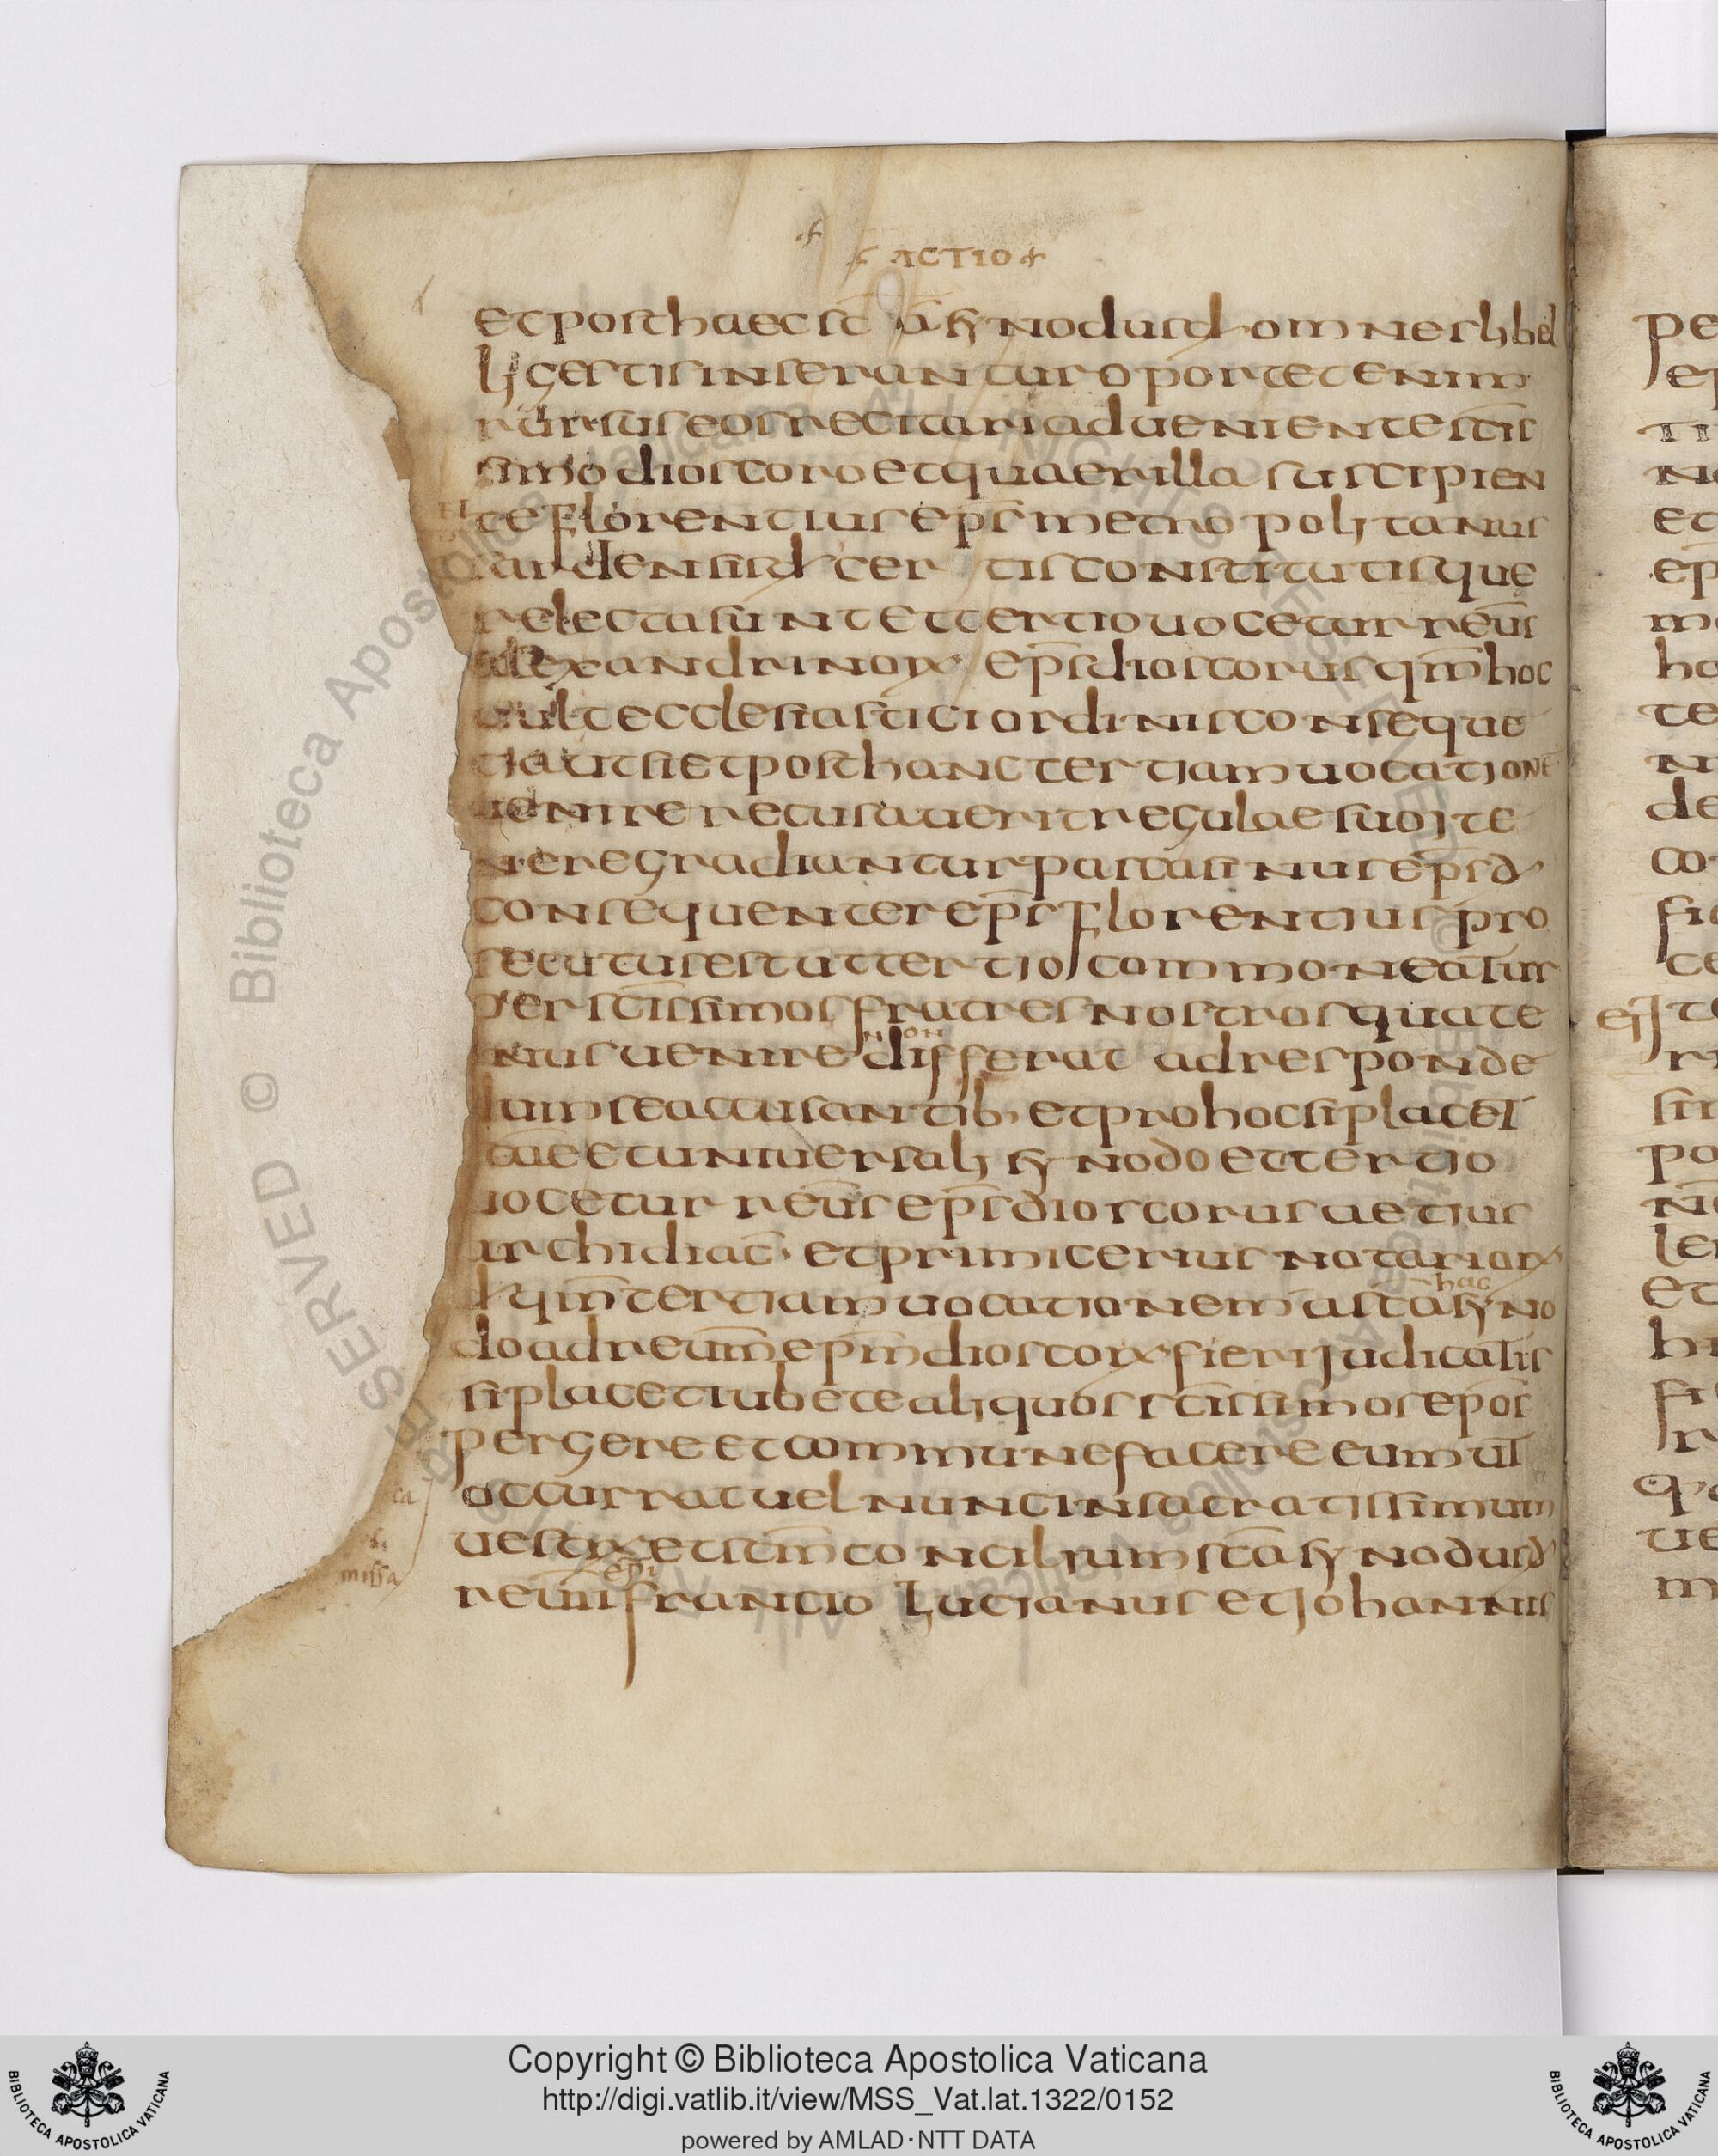 ACTIO
et post haec sc̄a synodus d omnes libel
li gestis inserantur oportet enim
rursus eos recitari advenientes c̄tis
simo dioscoro et quaerilla suscipien
te florentius ep̄s metropolitanus
sardensis d tertis constitutisque
relecta sunt et tertio vocetur rev̄s
alexandrinorx ep̄s dioscorus qm̄ hoc
vult ecclesiastici ordinis conseque
tia ut si et post hanc tertiam vocationē
venire recusaverit regulae suo ite
nere gradiantur pascasinus ep̄s d
consequenter ep̄s florentius pro
secutus est ut tertio commoneatur
per sc̄issimos fratres nostros quate
non
nus venire differat ad responde
sum se accusantib, et pro hoc si placet
tae et universali synodo et tertio
vocetur rev̄s ep̄s dioscorus aetius
archidiac̄ et primicerius notariorx
hac
d qm̄ tertiam vocationem a sc̄a syno
do ad reum̄ ep̄m dioscorx fieri judicatis
si placet iubete aliquos sc̄issimos ep̄os
pergere et commune facere eum ut
occurrat vel nunc in sacratissimum
vestrx et sc̄m concilium sc̄a synodus d
missa
ep̄i
rev̄m̄i francio lucianus et johannis
Copyright © Biblioteca Apostolica Vaticana
http://digi.vatlib.it/view/MSS_Vat.lat.1322/0152
powered by AMLAD·NTT DATA
BIBLIOTECA APOSTOLICA VATICANA
BIBLIOTECA APOSTOLICA VATICANA